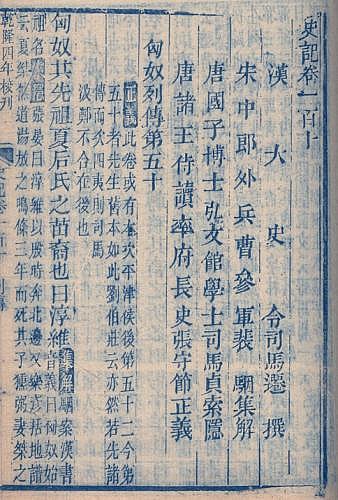 史記卷一百十
漢太史令司馬遷撰
宋中郎外兵曹參軍裴駰集解
唐國子博士弘文館學士司馬貞索隱
唐諸王侍讀率府長史張守節正義
匈奴列傳第五十
正義此卷或有本次平津侯後第五十二今第
五十者先生舊本如此劉伯莊云亦然若先諸
傳而次四夷則司馬
汲鄭不合在後也
匈奴其先祖夏后氏之苗裔也曰淳維
集解駰案漢書
音義曰匈奴始
祖名索隱張晏曰淳維以殷時奔北邊又樂彥括地譜
云夏桀無道湯放之鳴條三年而死其子獯粥妻桀之
乾隆四年校刊
史記卷一百十 列傳